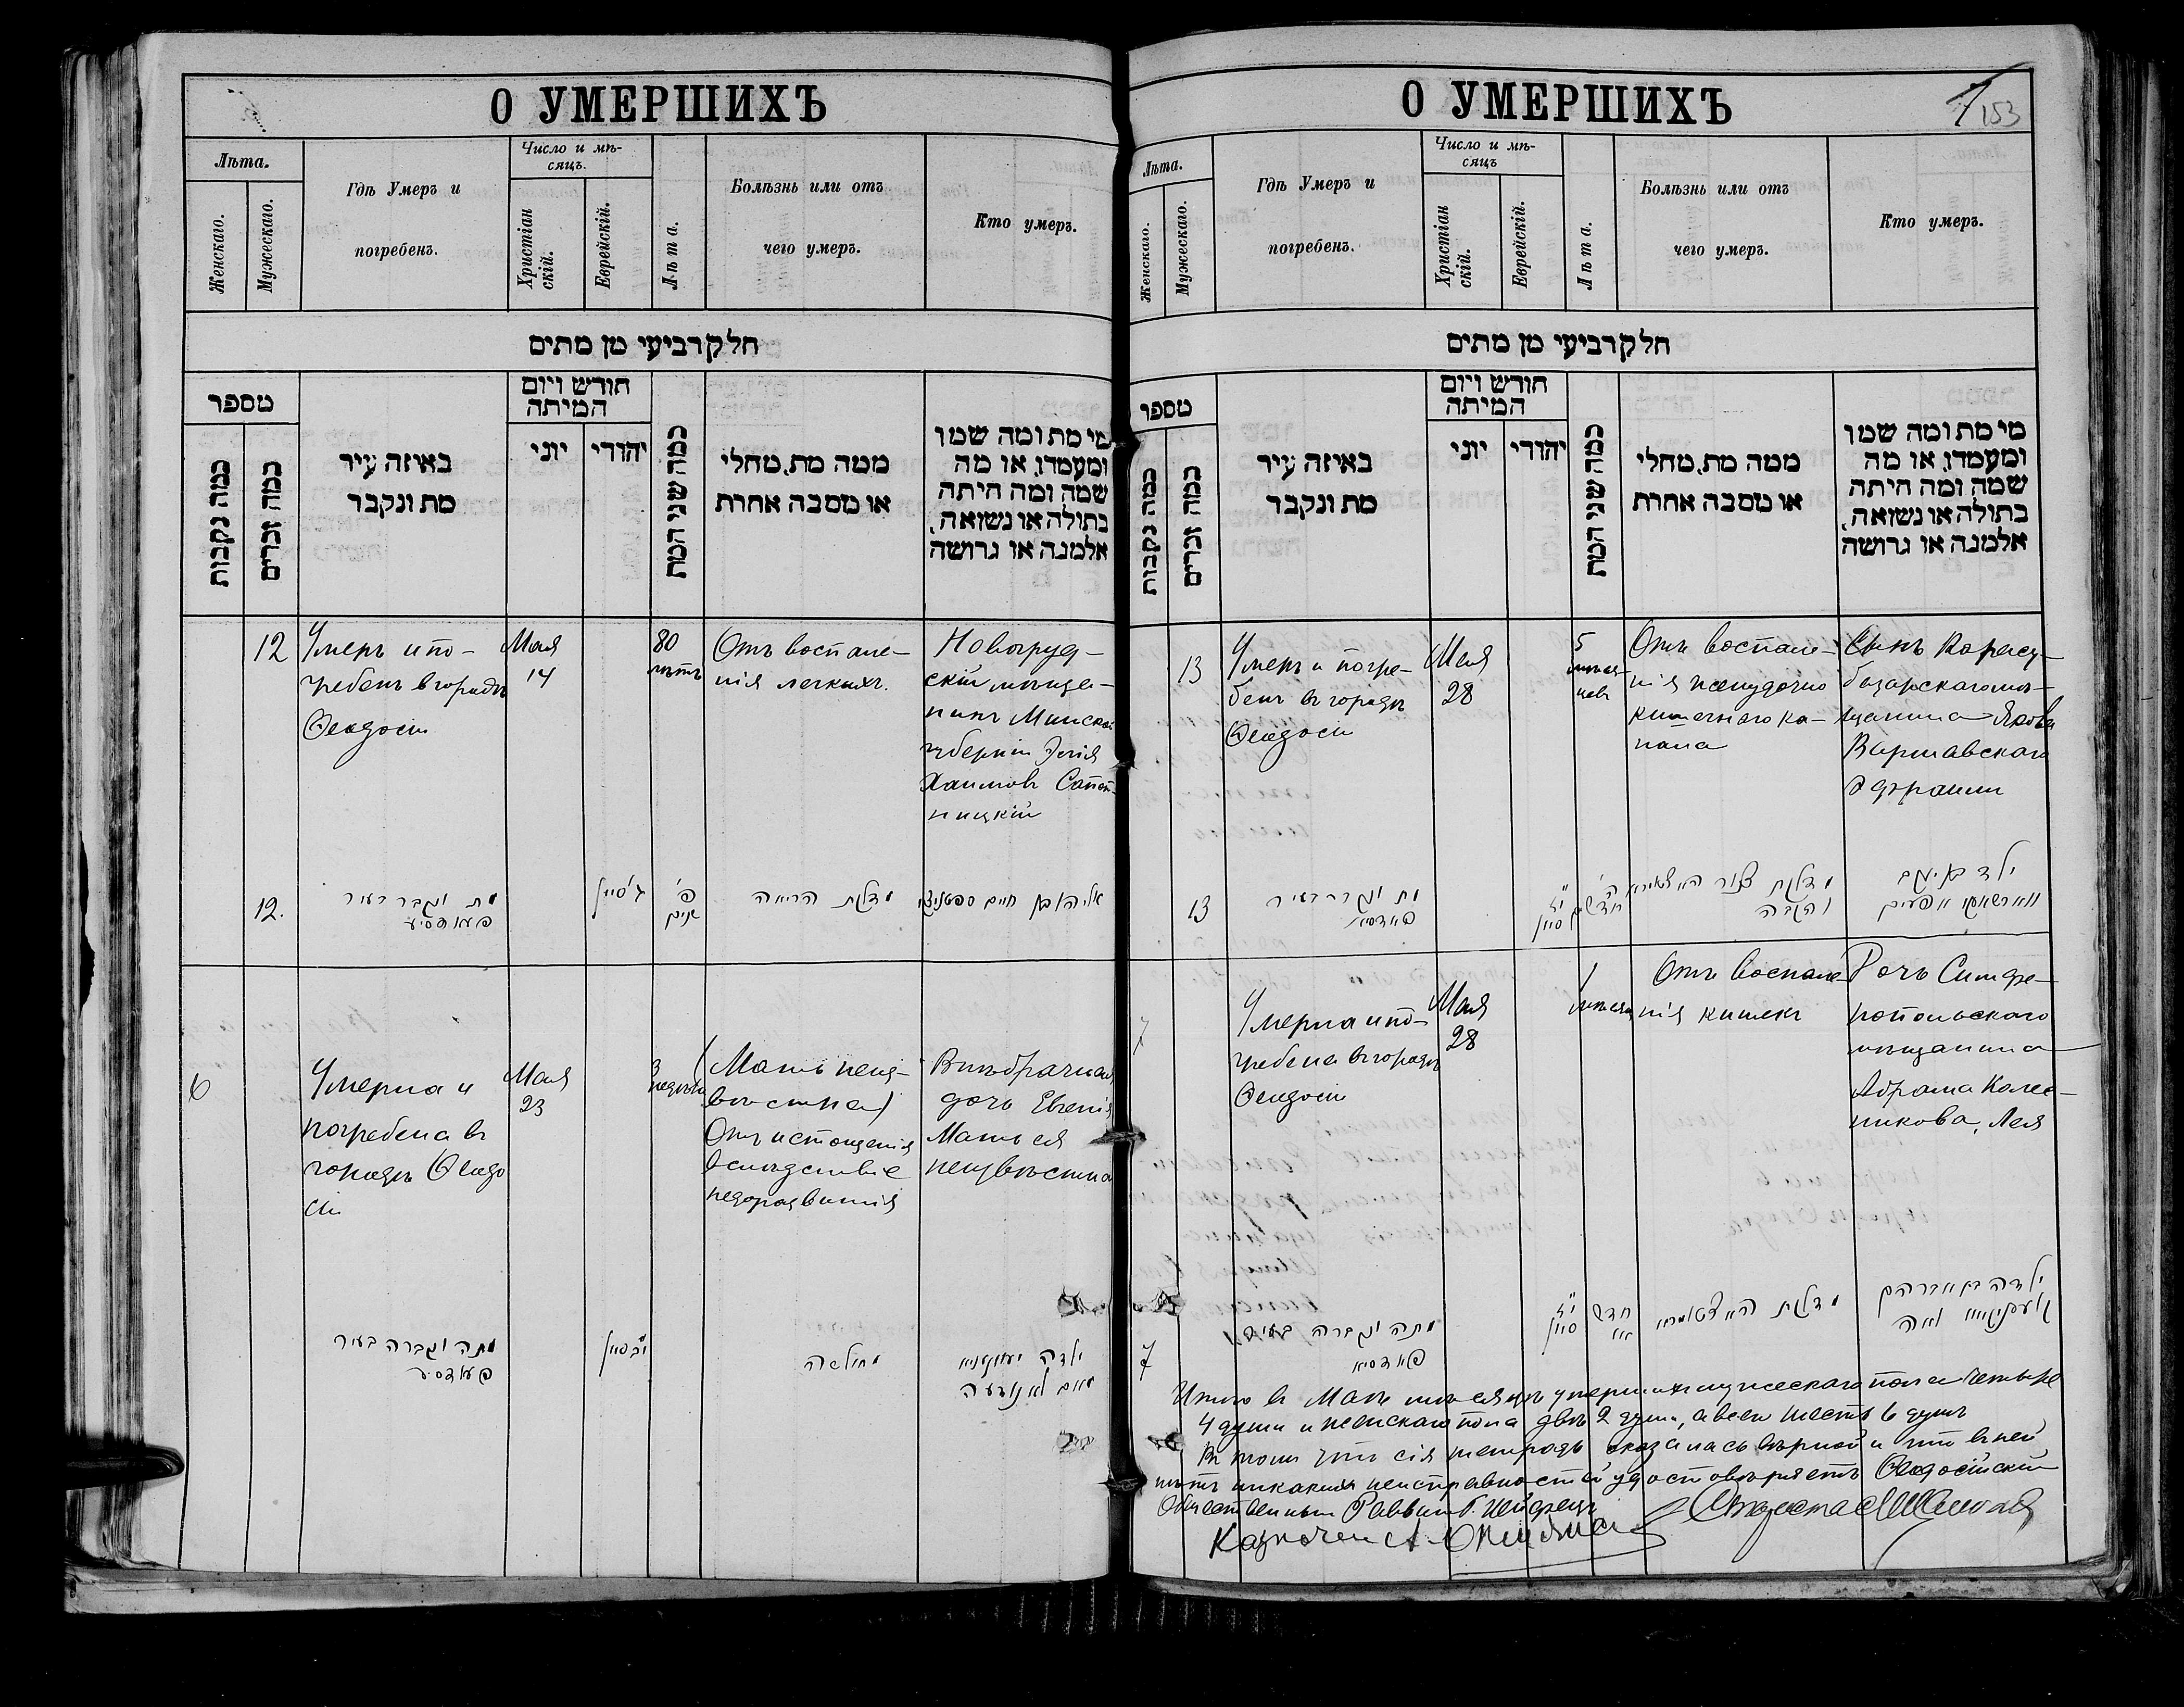 О УМЕРШИХЪ
Лѣта.
Женскаго.
Мужескаго.
Гдѣ Умеръ и
погребенъ.
Число и мѣ-
сяцъ.
Христіан
скій.
Еврейскій.
Лѣта.
Болѣзнь или отъ
чего умеръ.
Кто умеръ.
חלק רביעי מן מתים
מספר
כמה נקבות
כמה זכרים
באיזה עיר
מת ונקבר
חודש ויום
המיתה
יוני
יהודי
כמה שני המת
ממה מת, מחלי
או מסבה אחרת
מי מת ומה שמו
ומעמדו, או מה
שמה ומה היתה
בתולה או נשואה,
אלמנה או גרושה
12
Умеръ и по-
гребенъ в городѣ
Ѳеодосіи
Мая
14
80
лѣтъ
Отъ воспале-
нія легкихъ.
Новогруд-
скій мѣща-
нинъ Минской
губерніи Элія
Хаимовъ
12.
מת ונקבר בעיר
פעאדסיע
ג' סיון
פ'
שנים
מדלקת הריאה
אליהו בן חיים
6
Умерла и
погребена въ
городѣ Ѳеодо
сіи
Мая
23
3
недѣли
(Мать неиз-
вѣстна)
Отъ истощенія
вслѣдствіе
недоразвитія
Внѣбрачная
дочь Евгенія
Мать ея
неизвѣстна
מתה ונקברה בעיר
פעאדסיע
י"ב סיון
מחולשה
ילדה
לא נודעה
О УМЕРШИХЪ
153
Лѣта.
Женскаго.
Мужескаго.
Гдѣ Умеръ и
погребенъ.
Число и мѣ-
сяцъ
Христіан
скій.
Еврейскій.
Лѣта.
Болѣзнь или отъ
чего умеръ.
Кто умеръ.
חלק רביעי מן מתים
מספר
כמה נקבות
כמה זכרים
באיזה עיר
מת ונקבר
חודש ויום
המיתה
יוני
יהודי
כמה שני המת
ממה מת, מחלי
או מסבה אחרת
מי מת ומה שמו
ומעמדו, או מה
שמה ומה היתה
בתולה או נשואה,
אלמנה או גרושה
13
Умеръ и погре-
бенъ въ городѣ
Ѳеодосіи
Мая
28
5
мѣся-
цевъ
Отъ воспале-
нія желудочно
кишечнаго ка-
нала
Сынъ Карасу-
базарскаго мѣ-
щанина Якова
Варшавскаго
Эфраимъ
13
מת ונקבר בעיר
פאדסיא
י"ז
סיון
ה'
חדשים
מדלקת
והקבה
ילד בן יעקב
ווארשאווסקי אפרים
7
Умерла и по-
гребена въ городѣ
Ѳеодосіи
Мая
28
1
мѣсяц
Отъ воспале-
нія кишекъ
Дочь Симфе-
ропольскаго
мѣщанина
Абрама Колес-
никова, Лея
7
מתה ונקברה בעיר
פאדסיא
י"ז
סיון
חדש
מדלקת
ילדה בת אברהם
לאה
Итого въ Маѣ мѣсяцѣ умершихъ мужескаго пола четыре
4 души и женскаго пола двѣ 2 души, а всего шесть 6 душъ
Въ томъ что сія тетрадь оказалась вѣрной и что въ ней
нѣтъ никакихъ неисправностей удостовѣряетъ Ѳеодосійскій
Общественный Раввинъ
Казначей А.
Староста